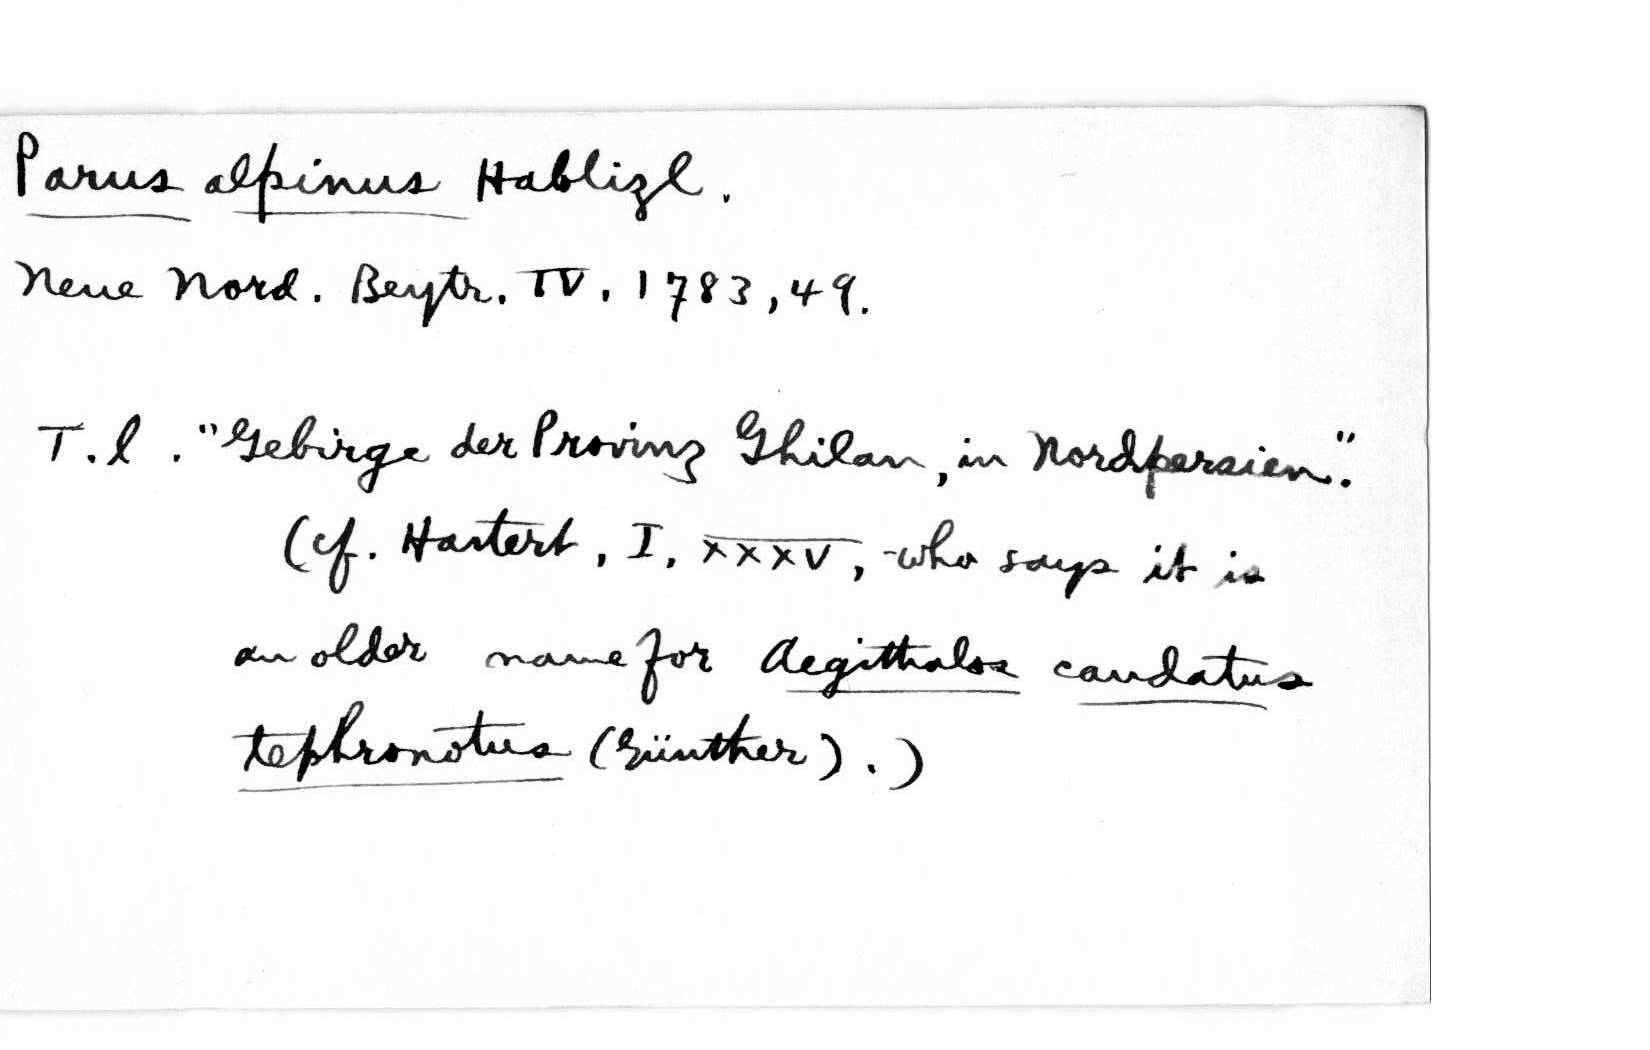 Parus alpinus Hablizl.
Neue Nord. Beytr. IV. 1783, 49.
T. l. "Gebirge der Provinz Ghilan, in Nordpersien".
(cf. Hartert, I, XXXV, who says it is
an older name for Aegithalos caudatus
tephronotus (Günther).)